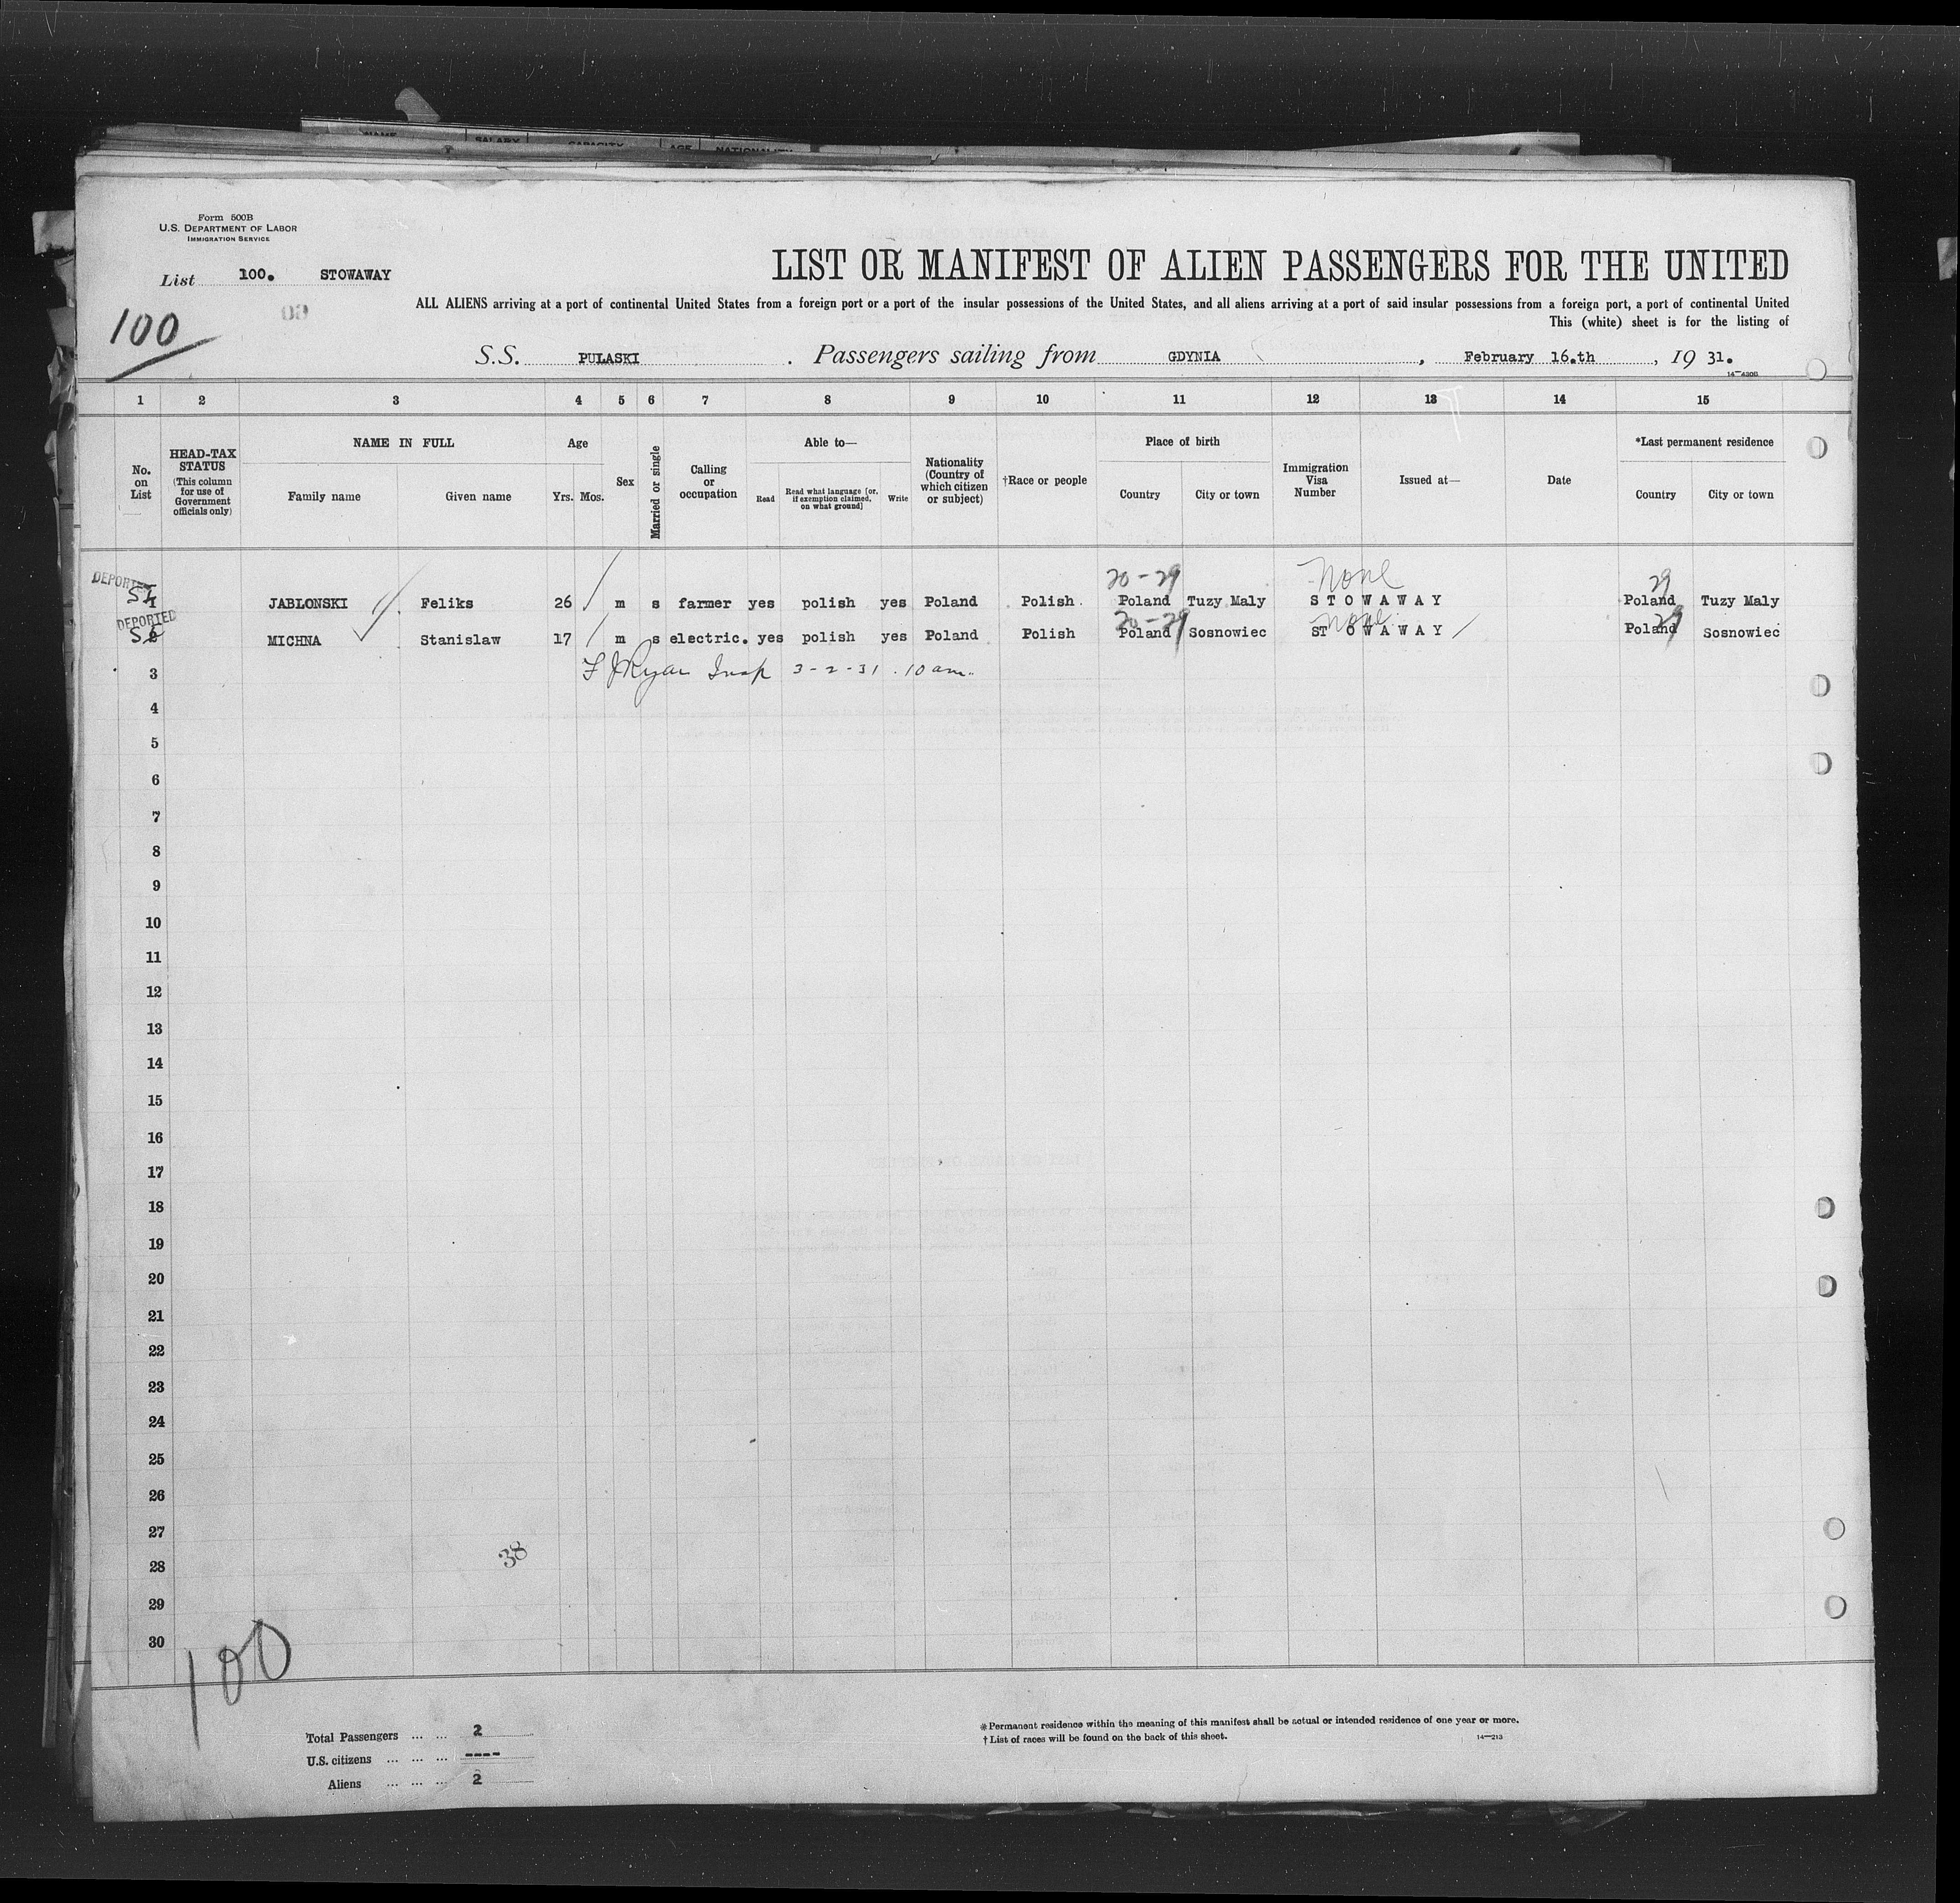 NAME SALARY CAPACITY AGE NATIONALITY
Form 500B
U.S. DEPARTMENT OF LABOR
IMMIGRATION SERVICE
List 100. STOWAWAY
100
LIST OR MANIFEST OF ALIEN PASSENGERS FOR THE UNITED
ALL ALIENS arriving at a port of continental United States from a foreign port or a port of the insular possessions of the United States, and all aliens arriving at a port of said insular possessions from a foreign port, a port of continental United
This (white) sheet is for the listing of
S.S. PULASKI . Passengers sailing from GDYNIA , February 16.th , 19 31.
1 2 3 4 5 6 7 8 9 10 11 12 13 14 15
No. on List
HEAD-TAX STATUS
(This column for use of Government officials only)
NAME IN FULL
Family name Given name
Age
Yrs. Mos.
Sex
Married or single
Calling or occupation
Able to—
Read
Read what language [or, if exemption claimed, on what ground]
Write
Nationality (Country of which citizen or subject)
†Race or people
Place of birth
Country City or town
Immigration Visa Number
Issued at—
Date
*Last permanent residence
Country City or town
DEPORTED
20-29 None 29
1 JABLONSKI Feliks 26 m s farmer yes polish yes Poland Polish. Poland Tuzy Maly STOWAWAY Poland Tuzy Maly
DEPORTED
20-29 None 29
MICHNA Stanislaw 17 m s electric. yes polish yes Poland Polish Poland Sosnowiec STOWAWAY Poland Sosnowiec
3 F J Ryan Insp 3-2-31 . 10 am.
4
5
6
7
8
9
10
11
12
13
14
15
16
17
18
19
20
21
22
23
24
25
26
27
38
28
29
30
100
Total Passengers ... ... 2
U.S. citizens ... ... ... ----
Aliens ... ... ... 2
*Permanent residence within the meaning of this manifest shall be actual or intended residence of one year or more.
†List of races will be found on the back of this sheet. 14—213